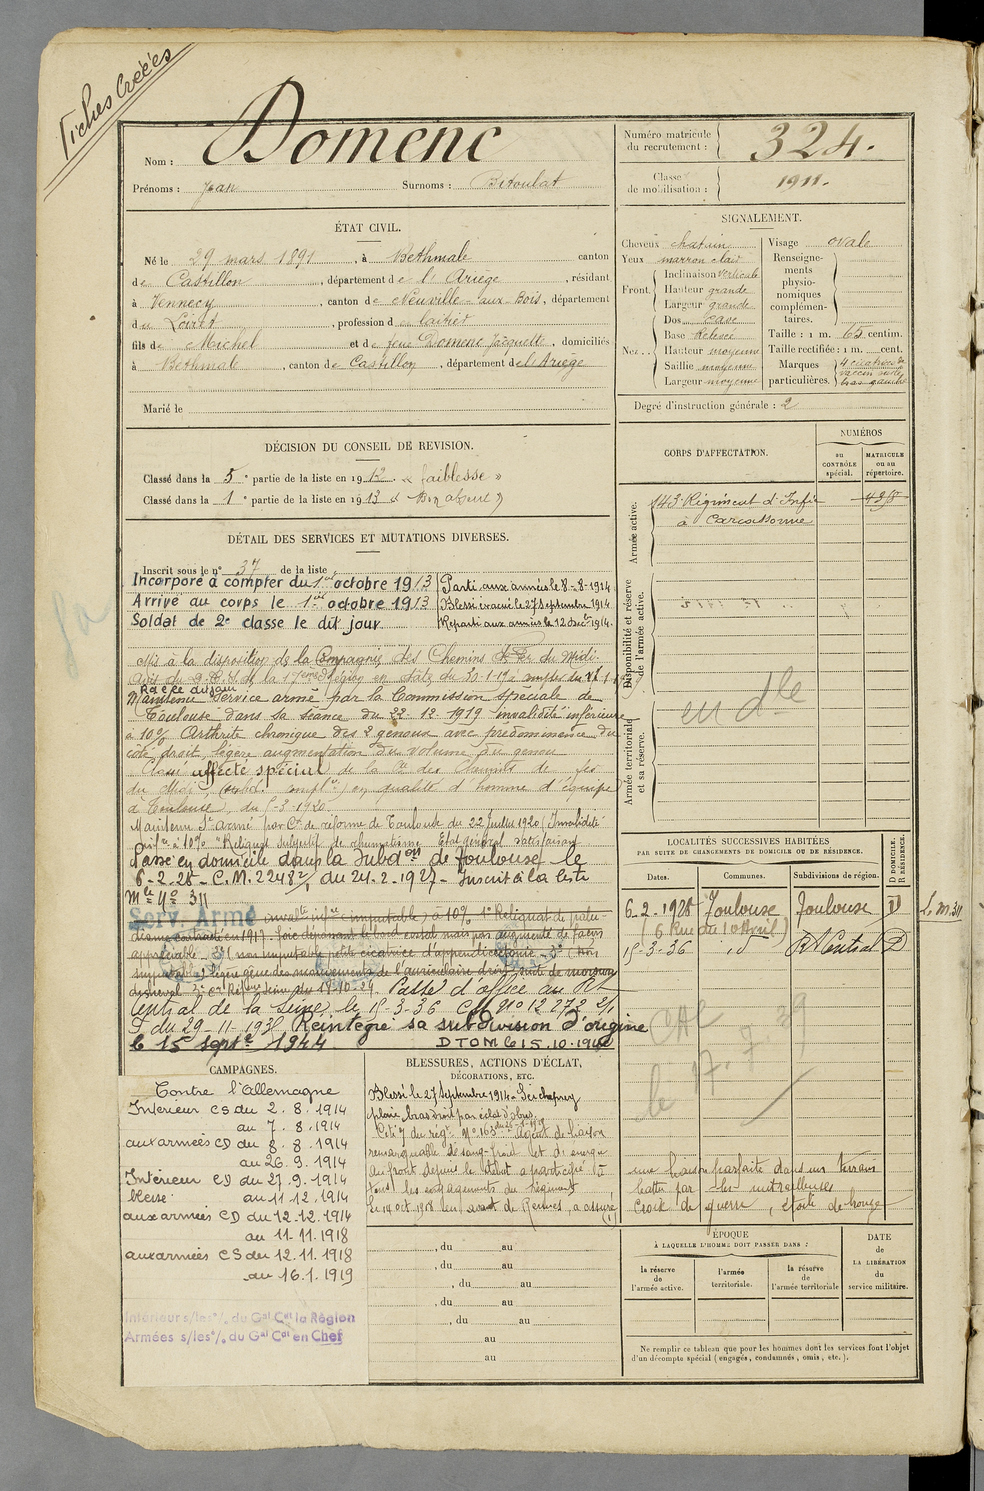 Fiches Créées
Nom : Domenc
Prénoms : Jean Surnoms : Bitoulat
Numéro matricule du recrutement : 324.
Classe de mobilisation : 1911.
ÉTAT CIVIL.
Né le 29 mars 1891, à Bethmale canton
de Castillon, département de l'Ariège, résidant
à Vennecy, canton de Neuville-aux-Bois, département
du Loiret, profession de laitier
fils de Michel et de feue Domenc Jacquette, domiciliés
à Bethmale, canton de Castillon, département de l'Ariège
Marié le
SIGNALEMENT.
Cheveux chatain
Yeux marron clair
Front. Inclinaison verticale
Hauteur grande
Largeur grande
Nez. Dos cave
Base Relevée
Hauteur moyenne
Saillie moyenne
Largeur moyenne
Visage ovale
Renseignements physionomiques complémentaires.
Taille : 1 m. 65 centim.
Taille rectifiée : 1 m. cent.
Marques particulières. 4 cicatrices de
vaccin sur le
bras gauche
Degré d'instruction générale : 2
DÉCISION DU CONSEIL DE REVISION.
Classé dans la 5e partie de la liste en 1912. « faiblesse »
Classé dans la 1e partie de la liste en 1913
DÉTAIL DES SERVICES ET MUTATIONS DIVERSES.
Inscrit sous le n° 37 de la liste
Incorporé à compter du 1er octobre 1913
Arrivé au corps le 1er octobre 1913
Soldat de 2e classe le dit jour
Parti aux armées le 8-8-1914
Blessé évacué le 27 Septembre 1914
Reparti aux armées le 12 Déc. 1914.
Mis à la disposition de la Compagnie des Chemins de Fer du Midi.
Rayé dudit jour
Maintenu Service armé par la Commission spéciale de
Toulouse dans sa séance du 22-12-1919 invalidité inférieure
à 10% Arthrite chronique des 2 genoux avec prédominence du
côté droit légère augmentation du volume du genou
Classé affecté spécial de la Cie des Chemins de fer
du Midi, en qualité d'homme d'équipe
à Toulouse, du 5-3-1920.
Maintenu Sce armé par Con de réforme de Toulouse du 22 Juillet 1920 (Invalidité
infre à 10% "Reliquat subjectif de rhumatisme Etat général satisfaisant
Passé en domicile dans la Subdon de Toulouse le
6-2-28 - C.M. 22482, du 24-2-1927 - Inscrit à la liste
Mle No 311
Serv. Armé
à 10% 1° Reliquat de palu-
disme contracté en 1917. foie dépassant le rebord costal mais pas augmenté de façon
appréciable. 2° (non imputable) petite cicatrice d'appendicectomie - 3° (non
légère gêne des mouvements de l'auriculaire droit, suite de morsure
de cheval du 18-10-29. Passé d'office au Rt
Central de la Seine, le 15-3-36 CM No 12272 2/1
D du 29-11-1935 Réintegré sa subdivision d'origine
le 15 septe 1944 DTOM le 15.10.1940
CORPS D'AFFECTATION.
NUMÉROS
au CONTRÔLE spécial.
MATRICULE ou au répertoire.
Armée active.
143e Régiment d'Infie
à Carcassonne
Disponibilité et réserve de l'armée active.
Armée territoriale et sa réserve.
en dle
LOCALITÉS SUCCESSIVES HABITÉES
PAR SUITE DE CHANGEMENTS DE DOMICILE OU DE RÉSIDENCE.
Dates. Communes. Subdivisions de région. D DOMICILE. R RÉSIDENCE.
6-2-1928 Toulouse Toulouse D L.m. 311
(6 Rue du 10 Avril)
15-3-36 id Rt Central D
le 17.7.39
CAMPAGNES.
Contre l'Allemagne
Intérieur CS du 2.8.1914
au 7.8.1914
aux armées CD du 8.8.1914
au 26.9.1914
Intérieur CD du 27.9.1914
blessé. au 11.12.1914
aux armées CD du 12.12.1914
au 11-11-1918
aux armées CS du 12.11.1918
au 16.1.1919
Intérieur s/les °/o du Gal Cdt la Région
Armées s/les °/o du Gal Cdt en Chef
BLESSURES, ACTIONS D'ÉCLAT,
DÉCORATIONS, ETC.
Blessé le 27 Septembre 1914
plaie bras droit par éclat d'obus.
Cité du régt. No 163 Agent de liaison
remarquable de sang-froid et d'énergie
Au front depuis le début a participé à
tous les engagements du régiment
Le 14 oct. 1918 en avant de a assuré
une liaison parfaite dans un terrain
battu par les mitrailleuses
Croix de guerre, étoile de bronze
, du au
, du au
, du au
, du au
, du au
au
au
ÉPOQUE
À LAQUELLE L'HOMME DOIT PASSER DANS :
la réserve de l'armée active.
l'armée territoriale.
la réserve de l'armée territoriale
DATE de LA LIBÉRATION du service militaire.
Ne remplir ce tableau que pour les hommes dont les services font l'objet
d'un décompte spécial (engagés, condamnés, omis, etc.).